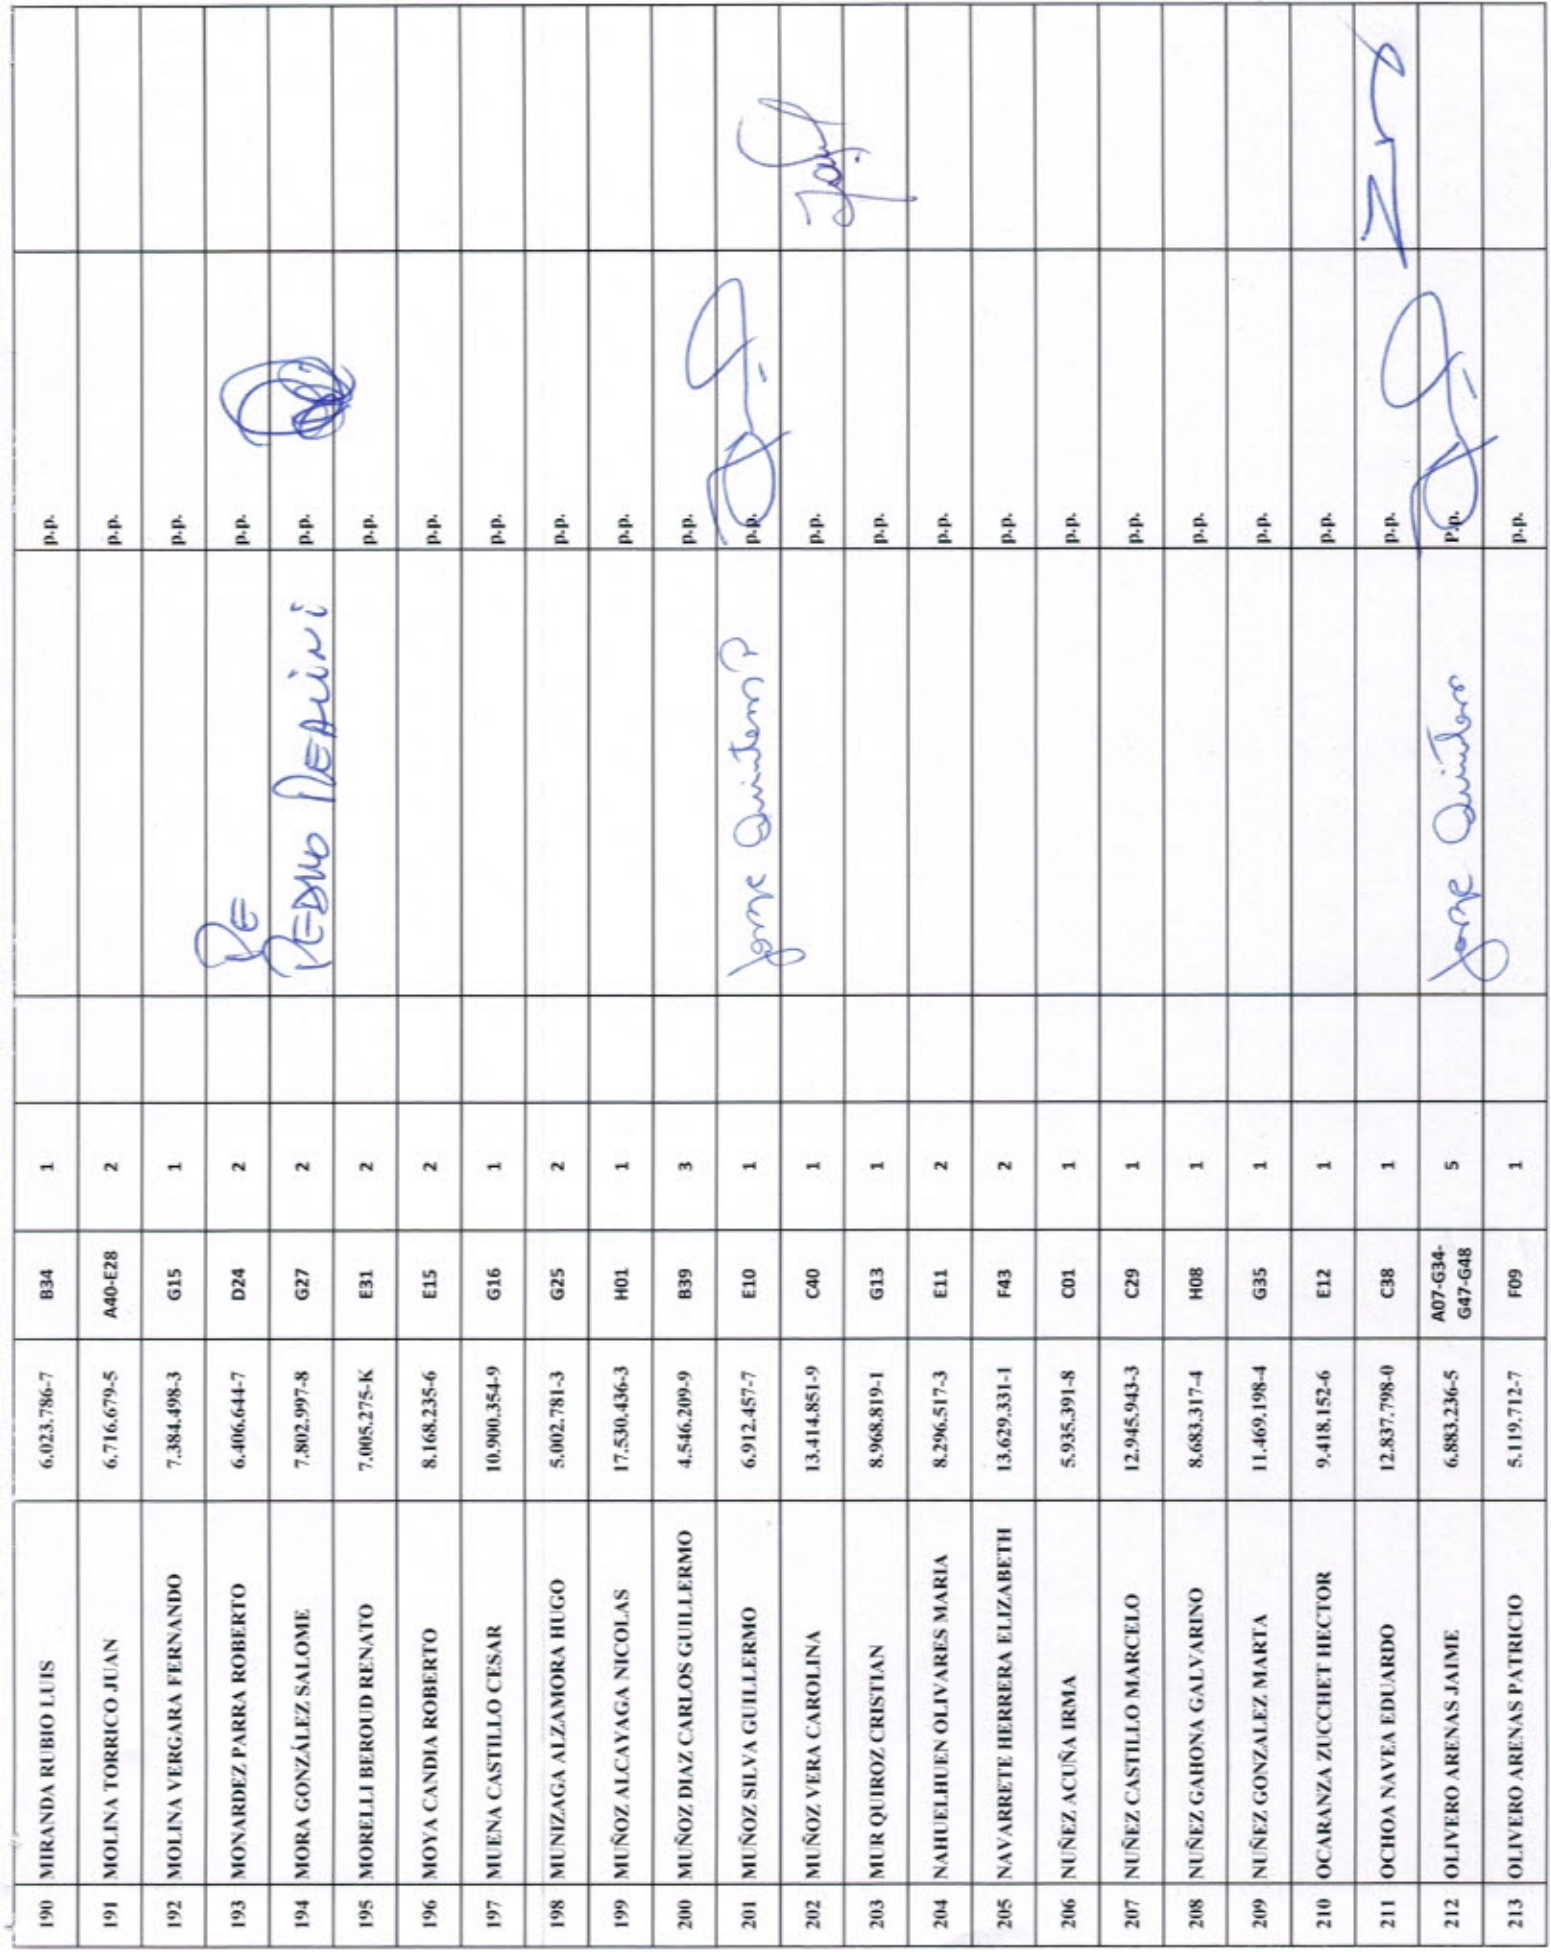 190 MIRANDA RUBIO LUIS 6.023.786-7 B34 1 p.p.
191 MOLINA TORRICO JUAN 6.716.679-5 A40-E28 2 p.p.
192 MOLINA VERGARA FERNANDO 7.384.498-3 G15 1 p.p.
193 MONARDEZ PARRA ROBERTO 6.406.644-7 D24 2 p.p.
194 MORA GONZÁLEZ SALOME 7.802.997-8 G27 2 p.p.
195 MORELLI BEROUD RENATO 7.005.275-K E31 2 p.p.
196 MOYA CANDIA ROBERTO 8.168.235-6 E15 2 p.p.
197 MUENA CASTILLO CESAR 10.900.354-9 G16 1 p.p.
198 MUNIZAGA ALZAMORA HUGO 5.002.781-3 G25 2 p.p.
199 MUÑOZ ALCAYAGA NICOLAS 17.530.436-3 H01 1 p.p.
200 MUÑOZ DIAZ CARLOS GUILLERMO 4.546.209-9 B39 3 p.p.
201 MUÑOZ SILVA GUILLERMO 6.912.457-7 E10 1 Jorge p.p.
202 MUÑOZ VERA CAROLINA 13.414.851-9 C40 1 p.p.
203 MUR QUIROZ CRISTIAN 8.968.819-1 G13 1 p.p.
204 NAHUELHUEN OLIVARES MARIA 8.296.517-3 E11 2 p.p.
205 NAVARRETE HERRERA ELIZABETH 13.629.331-1 F43 2 p.p.
206 NUÑEZ ACUÑA IRMA 5.935.391-8 C01 1 p.p.
207 NUÑEZ CASTILLO MARCELO 12.945.943-3 C29 1 p.p.
208 NUÑEZ GAHONA GALVARINO 8.683.317-4 H08 1 p.p.
209 NUÑEZ GONZALEZ MARTA 11.469.198-4 G35 1 p.p.
210 OCARANZA ZUCCHET HECTOR 9.418.152-6 E12 1 p.p.
211 OCHOA NAVEA EDUARDO 12.837.798-0 C38 1 p.p.
212 OLIVERO ARENAS JAIME 6.883.236-5 A07-G34-
G47-G48 5 Jorge Quintero P.p.
213 OLIVERO ARENAS PATRICIO 5.119.712-7 F09 1 p.p.